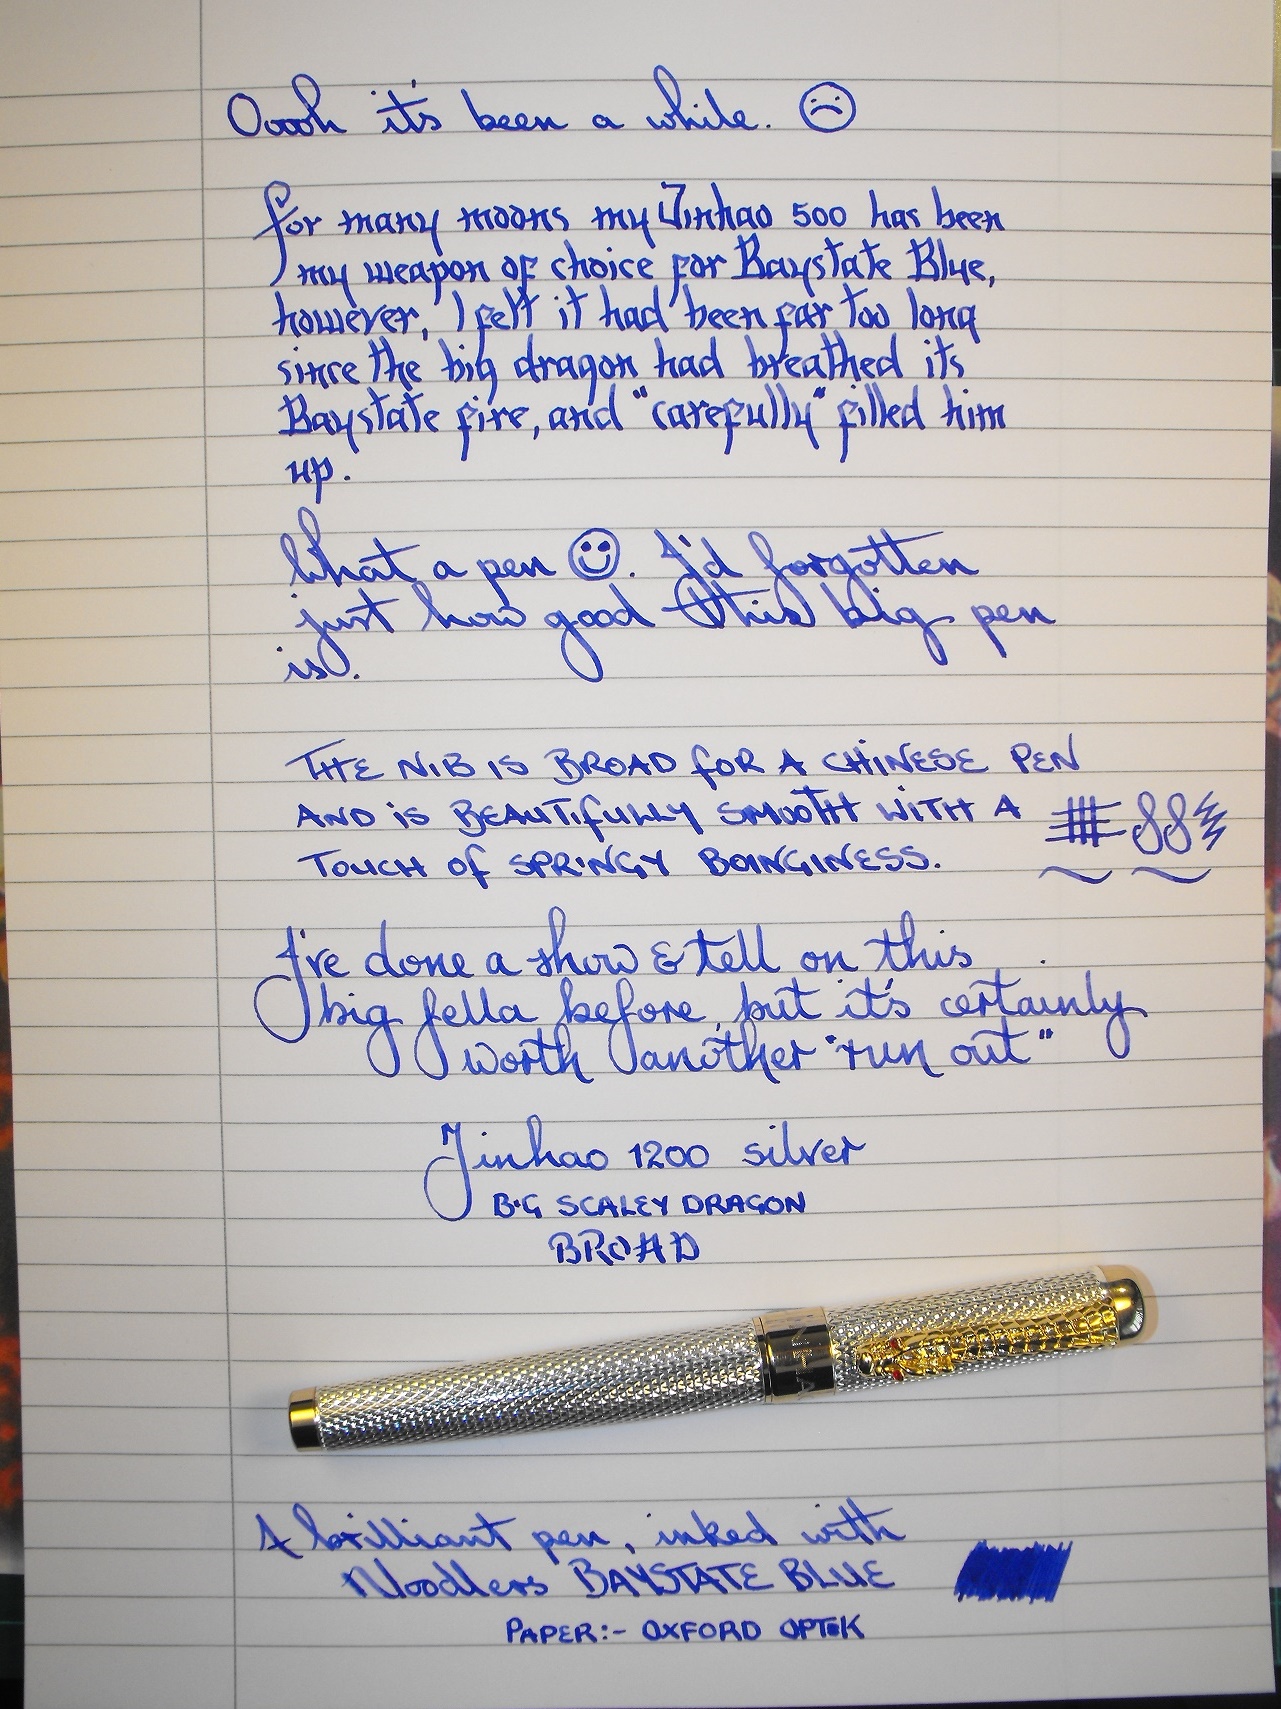 Ooooh it's been a while. ☹
for many moons my Jinhao 500 has been
my weapon of choice for Baystate Blue,
however, I felt it had been far too long
since the big dragon had breathed its
Baystate fire, and "carefully" filled him
up.
What a pen ☺. I'd forgotten
just how good this big pen
is.
THE NIB IS BROAD foR A CHINESE PEN
AND iS BEAUTifULLY SMOOTH WITH A
TOUCH Of SPRINGY BOINGINESS.
I've done a show & tell on this
big fella before, but it's certainly
worth another "run out"
Jinhao 1200 silver
BIG SCALEY DRAGON
BROAD
A brilliant pen, inked with
Noodlers BAYSTATE BLUE
PAPER:- OXFORD OPTEK